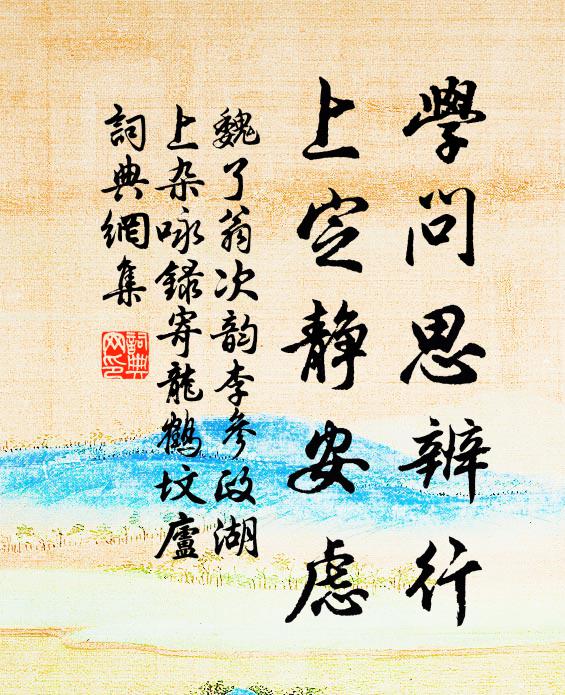 學問思辨行
上定靜安慮
魏了翁次韵李參政湖
上杂咏錄寄龍鶴坟廬
詞典網集
詞典
网印